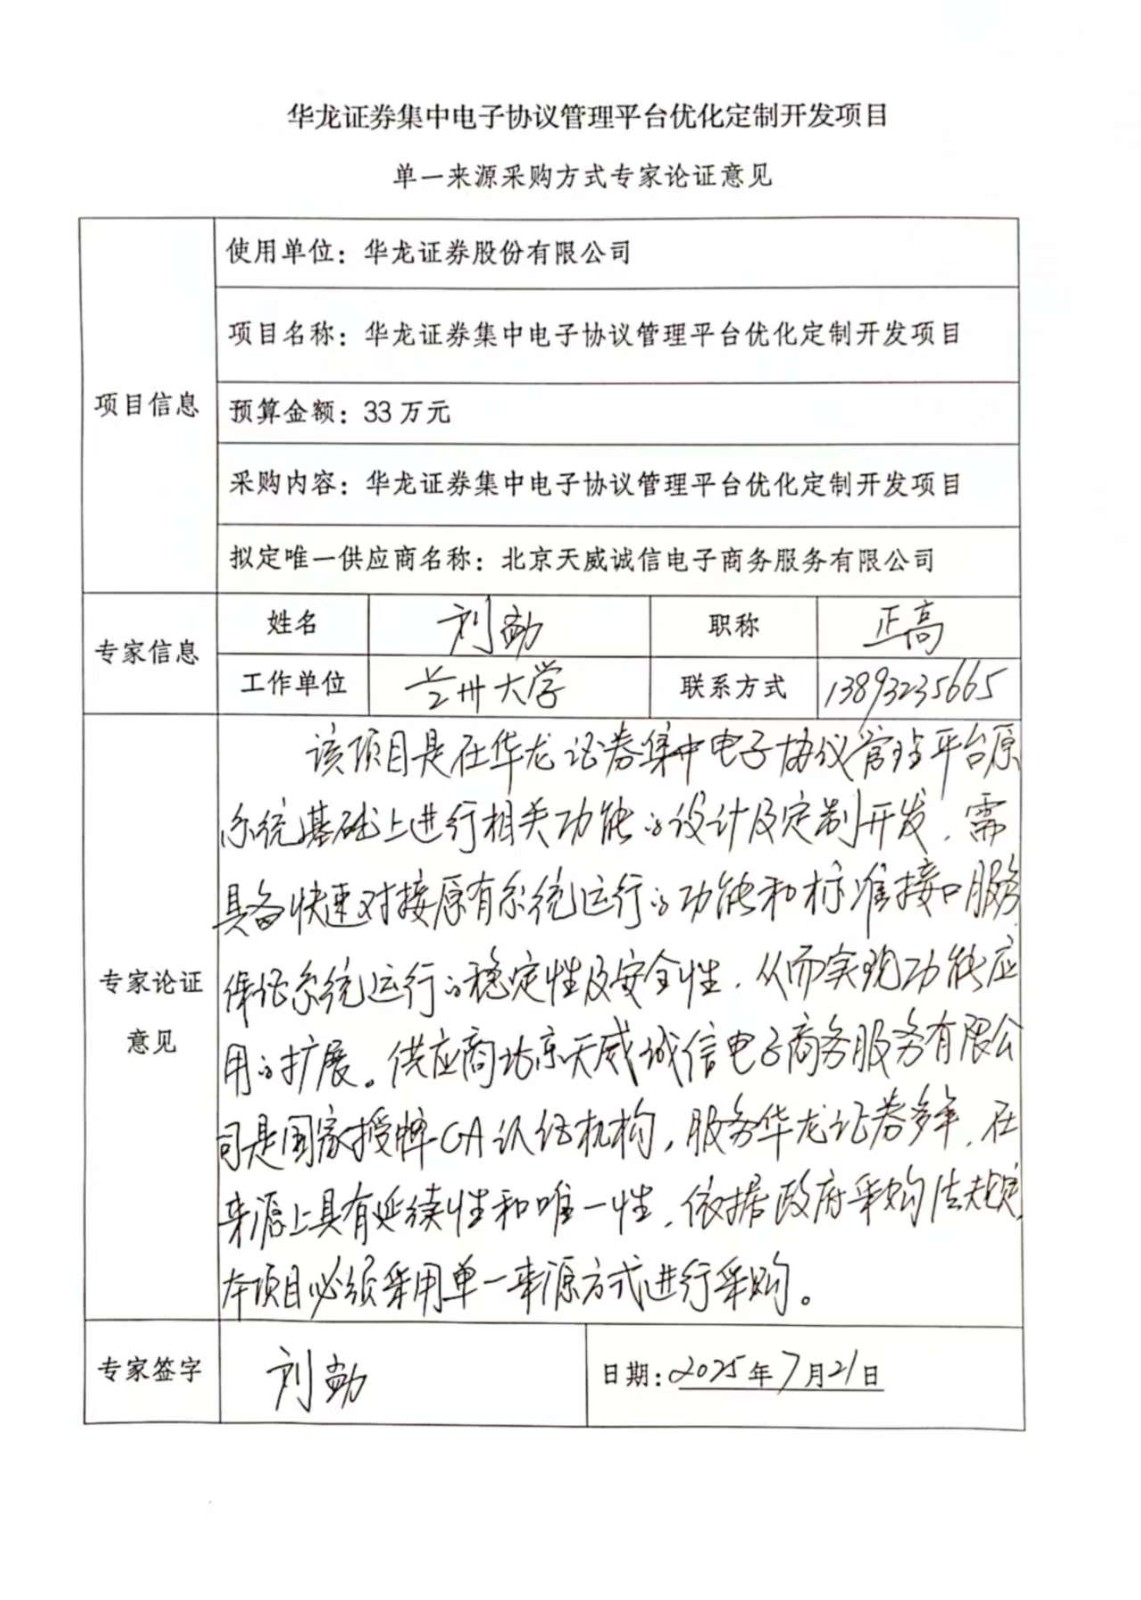 华龙证券集中电子协议管理平台优化定制开发项目
单一来源采购方式专家论证意见
项目信息
使用单位：华龙证券股份有限公司
项目名称：华龙证券集中电子协议管理平台优化定制开发项目
预算金额：33万元
采购内容：华龙证券集中电子协议管理平台优化定制开发项目
拟定唯一供应商名称：北京天威诚信电子商务服务有限公司
专家信息
姓名 刘勐 职称 正高
工作单位 兰州大学 联系方式 13893235665
专家论证
意见
该项目是在华龙证券集中电子协议管理平台原
系统基础上进行相关功能的设计及定制开发，需
具备快速对接原有系统运行的功能和标准接口服务
保证系统运行的稳定性及安全性，从而实现功能应
用的扩展。供应商北京天威诚信电子商务服务有限公
司是国家授牌CA认证机构，服务华龙证券多年，在
来源上具有延续性和唯一性，依据政府采购法规定，
本项目必须采用单一来源方式进行采购。
专家签字 刘勐 日期：2025年7月21日